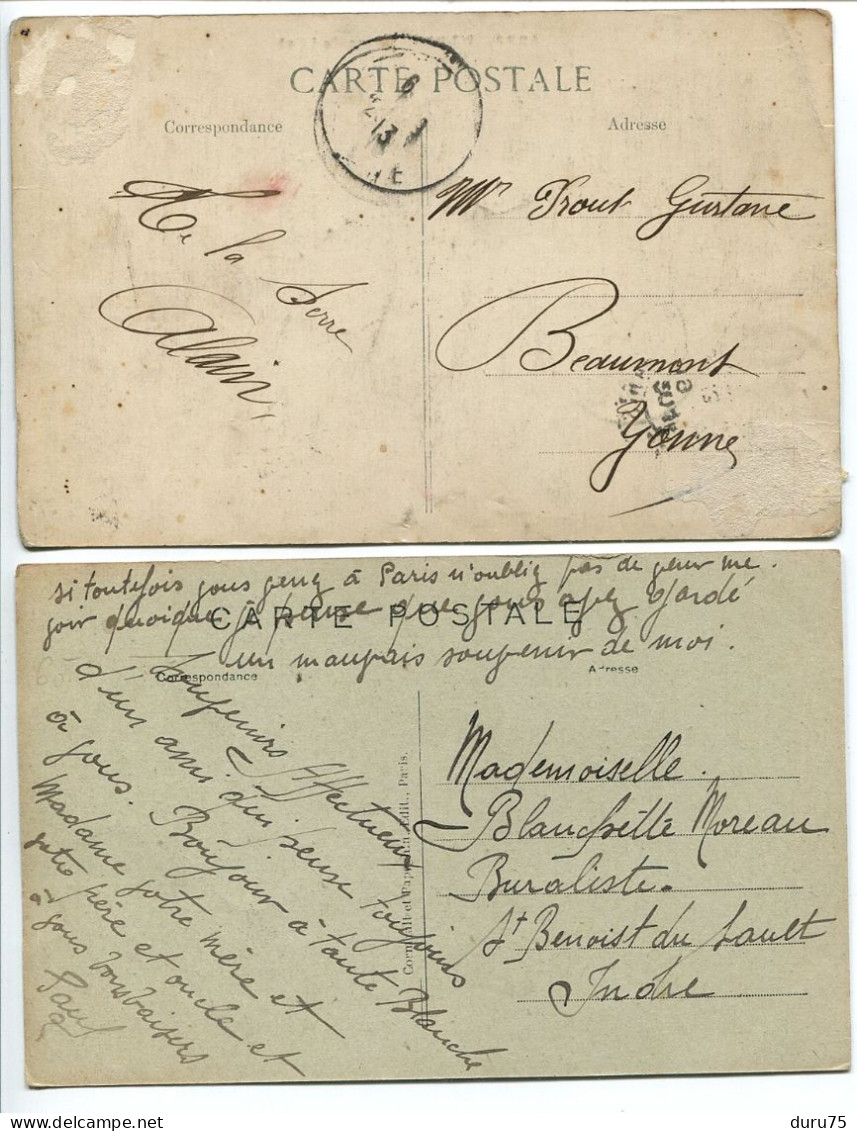 CARTE POSTALE
Correspondance
Adresse
6
13
de la Serre
Alain
Mr Prout Gustave
Beaumont
Yonne
si toutefois vous venez à Paris n'oubliez pas de venir me
voir quoique je pense que vous avez gardé
CARTE POSTALE
un mauvais souvenir de moi.
Correspondance
Adresse
Souvenirs Affectueux
d'un ami qui pense toujours
à vous. Bonjour à tante Blanche
Madame votre mère et
votre père et oncle et
à vous bons baisers
Edit., Paris.
Mademoiselle.
Blanchette Moreau
Buraliste.
St Benoist du Sault
Indre
duru75